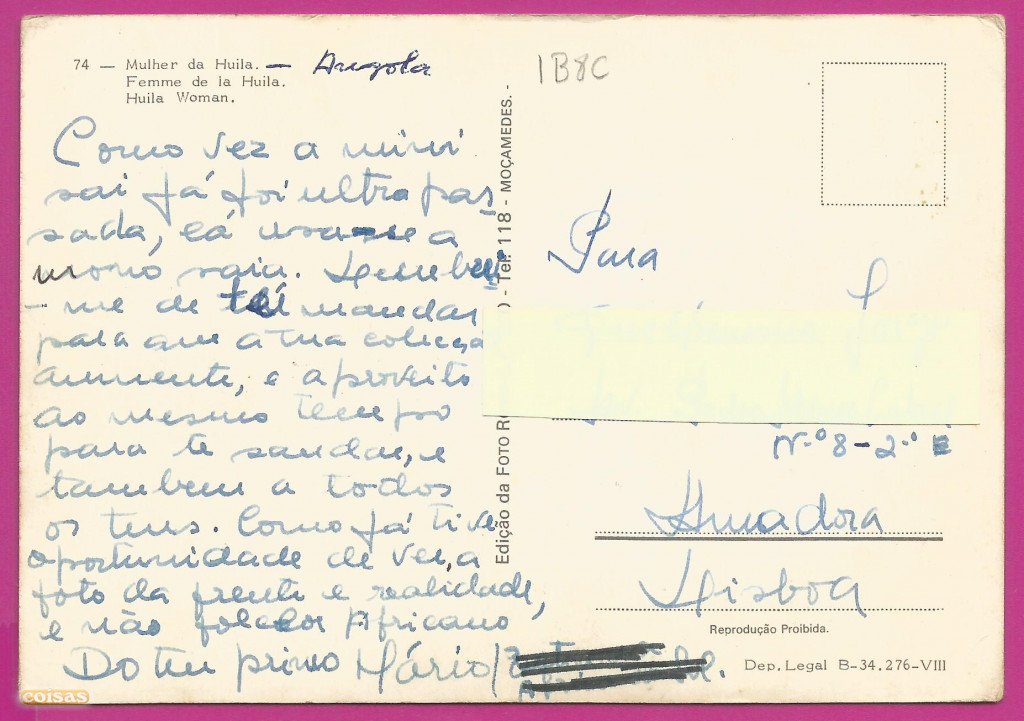 74 — Mulher da Huila. — Angola
Femme de la Huila.
Huila Woman.
Como vez a mini
sai já foi ultrapas
sada, cá usa-se a
mono saia. Lembrei
-me de ta mandar
para que a tua colecção
aumente, e aproveito
ao mesmo tempo
para te saudar, e
tambem a todos
os teus. Como já tive
oportunidade de ver, a
foto da frente e realidade,
e não folclor Africano
Do teu primo Mário
Edição da FOTO
) - Tel. 118 - MOÇAMEDES. -
1B8C
Para
N.º 8-2.º E
Amadora
Lisboa
Reprodução Proibida.
Dep. Legal B-34.276-VIII
coisas